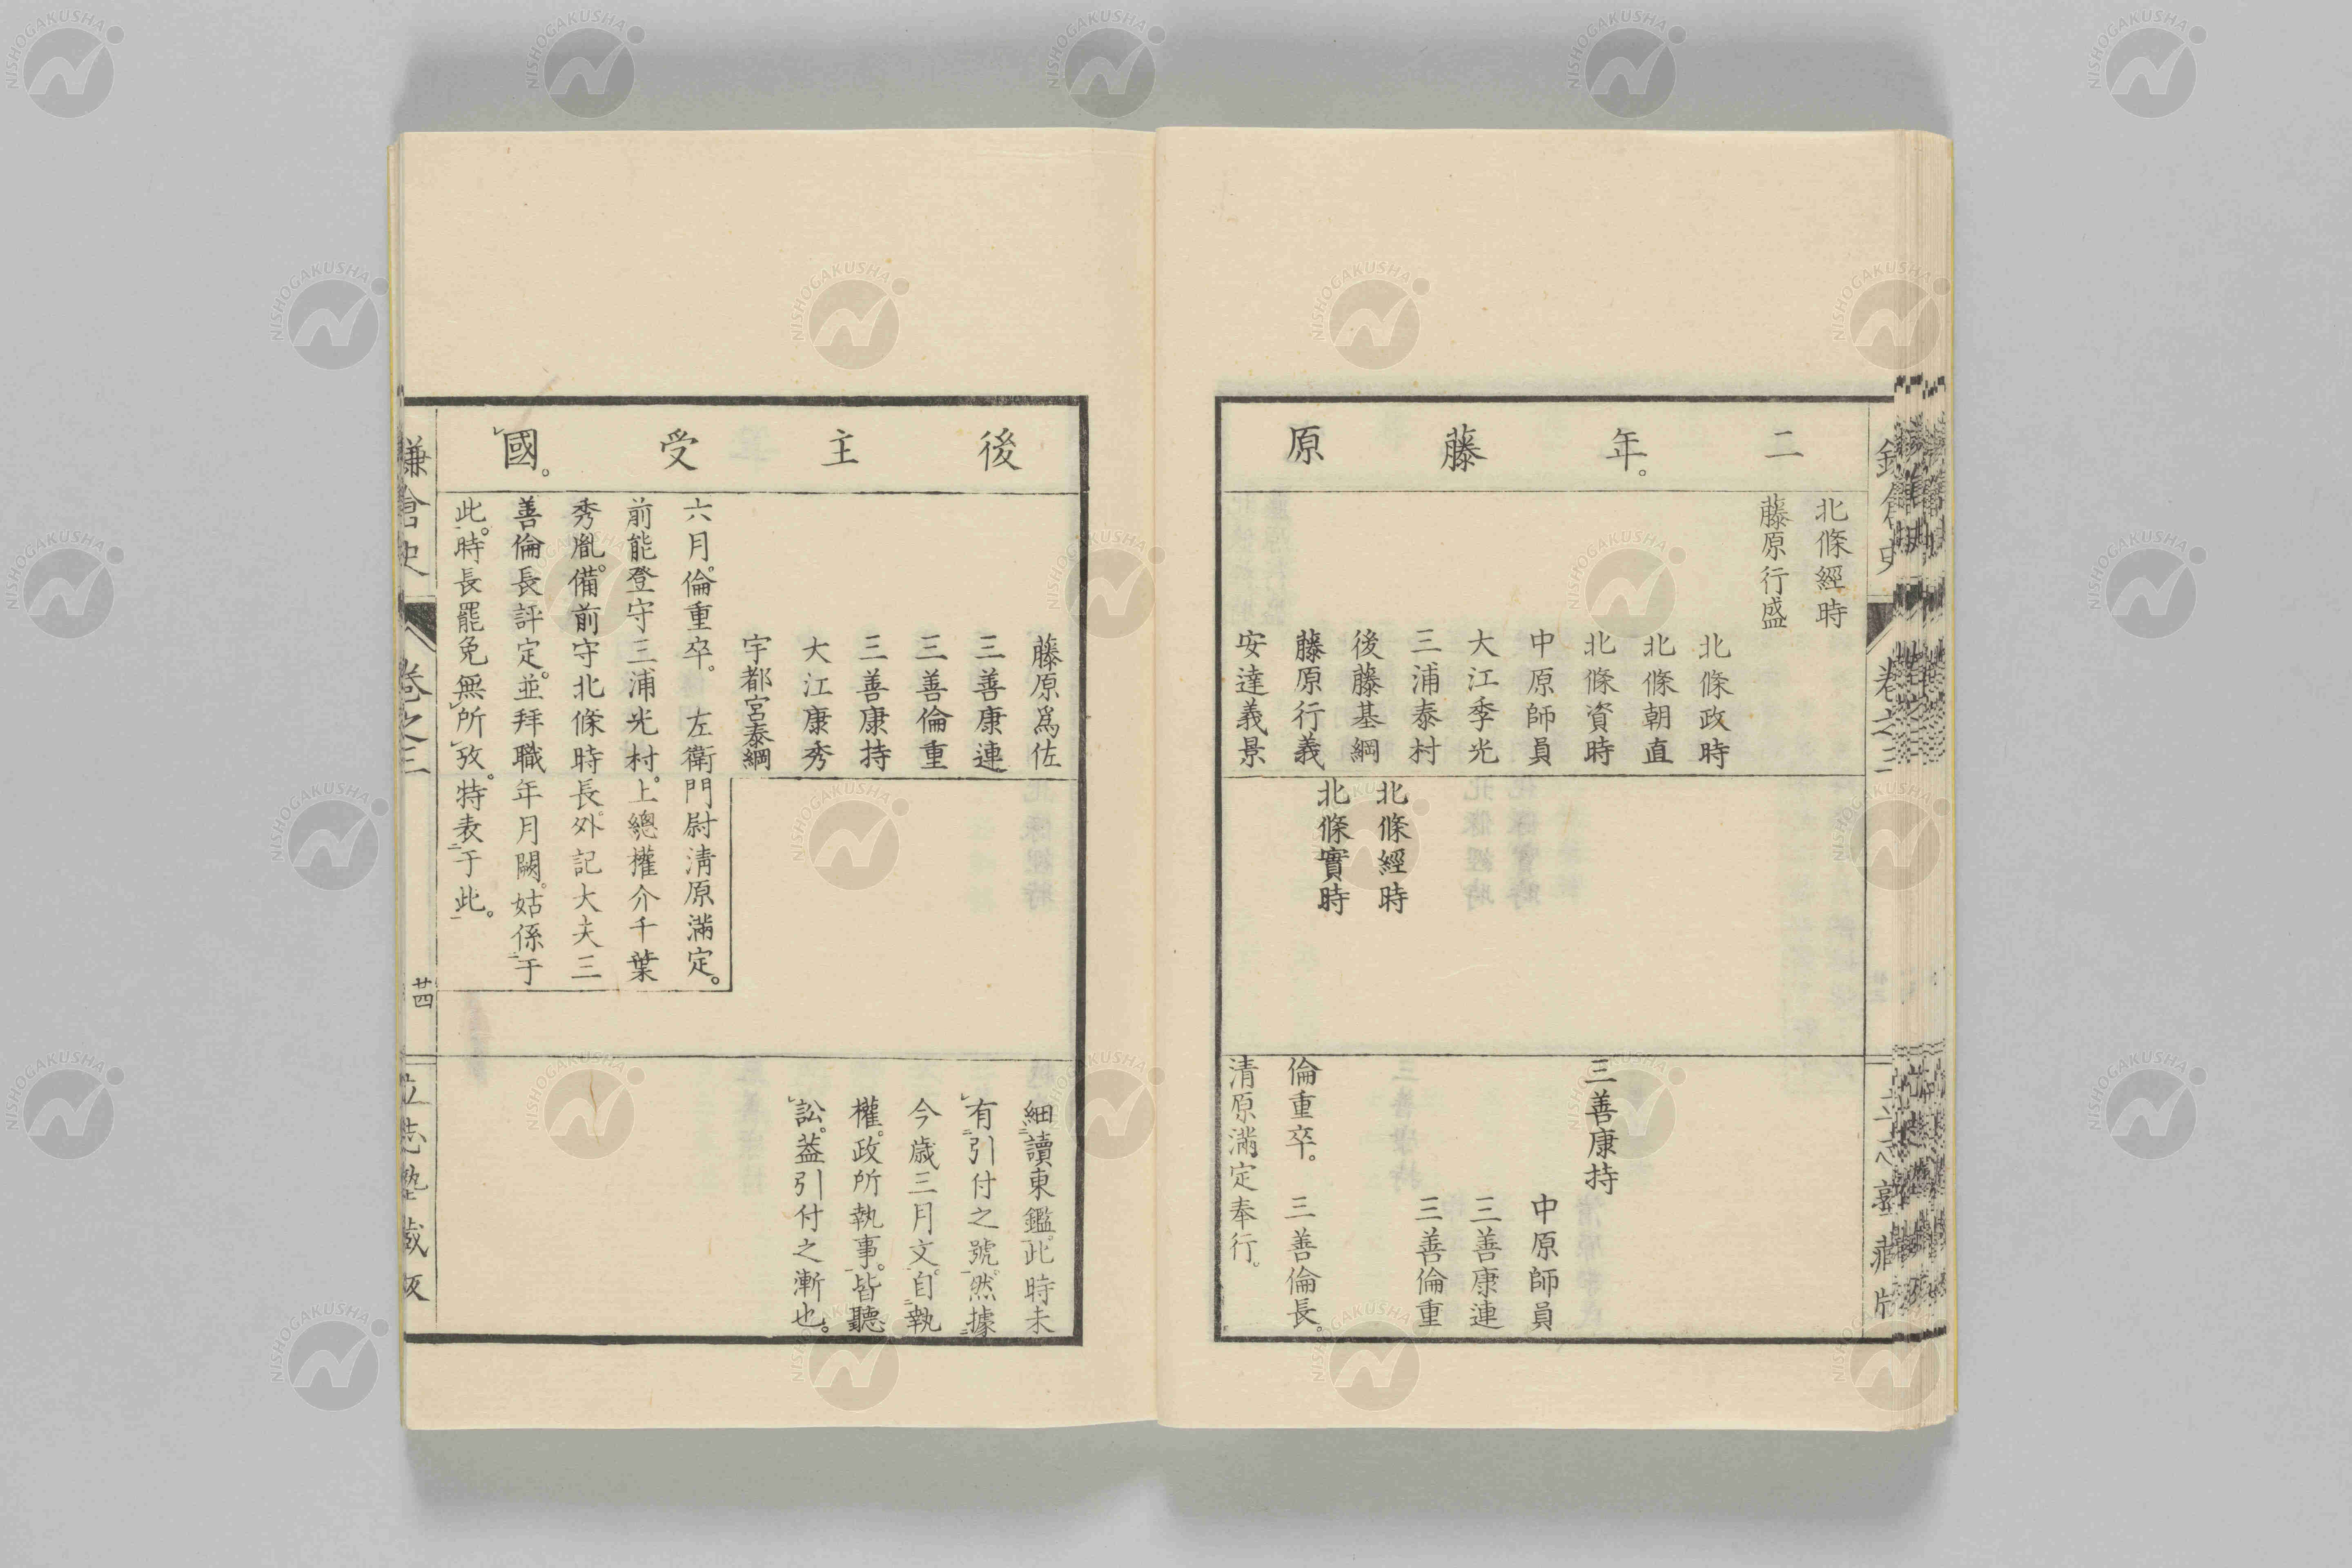 二年。藤原
北條經時
藤原行盛
北條政時
北條朝直
北條資時
中原師員
大江季光
三浦泰村
後藤基綱
藤原行義
安達義景
北條經時
北條實時
三善康持
中原師員
三善康連
三善倫重
倫重卒。三善倫長。
清原滿定奉行。
後主受國。
藤原爲佐
三善康連
三善倫重
三善康持
大江康秀
宇都宮泰綱
六月。倫重卒。左衛門尉清原滿定。
前能登守三浦光村。上總權介千葉
秀胤。備前守北條時長。外記大夫三
善倫長評定。並拜職年月闕。姑係于
此。時長罷免無所攷。特表于此。
細讀東鑑。此時未
有引付之號。然據
今歲三月文。自執
權。政所執事。皆聽
訟。蓋引付之漸也。
鎌倉史
卷之三
廿四
立志塾藏版
NISHOGAKUSHA